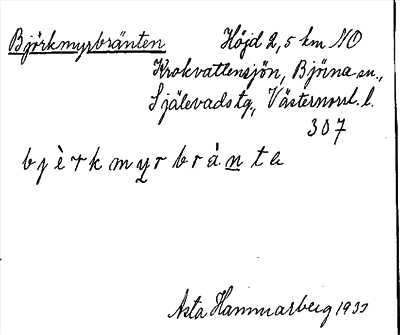 Björkmyrbränten Höjd 2,5 km NO
Krokvattensjön, Björna sn.,
Själevads tg, Västernorrl. l.
307
b j è r k m y r b r á n t e
Asta Hammarberg 1933